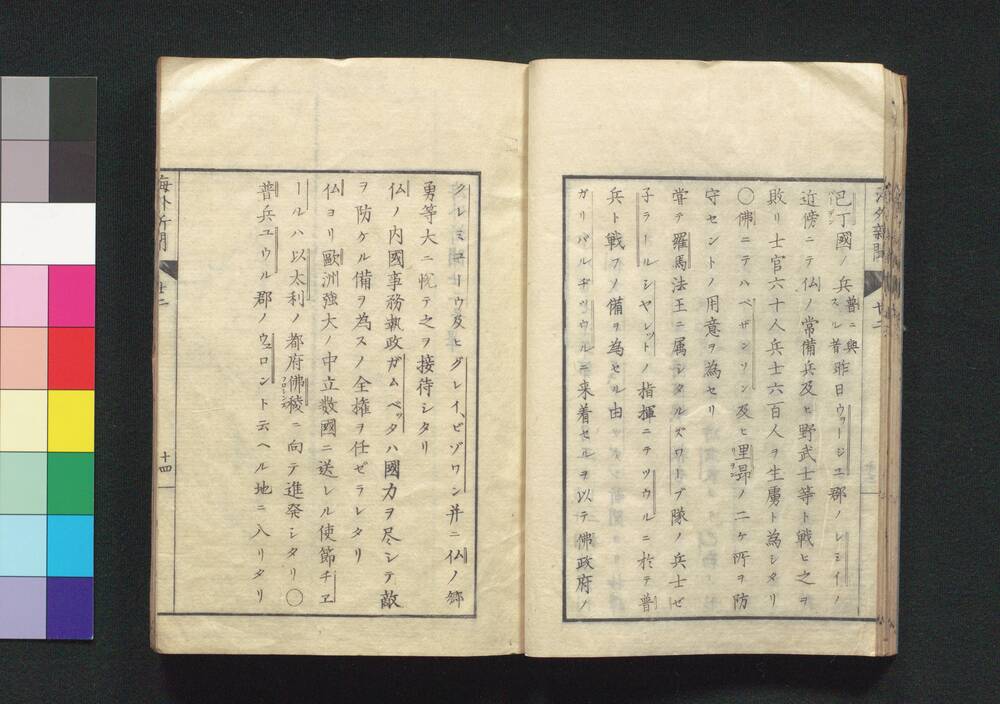 海外新聞 廿二
巴丁國ノ兵普ニ與スル昔昨日ウォージユ郡ノレミイノ
近傍ニテ仏ノ常備兵及ヒ野武士等ト戦ヒ之ヲ
敗リ士官六十人兵士六百人ヲ生虜ト為シタリ
〇佛ニテハベザンソン及ヒ里昻ノ二ケ所ヲ防
守セントノ用意ヲ為セリ
嘗テ羅馬法王ニ属シタルズワーブ隊ノ兵士ゼ
子ラールシヤレットノ指揮ニテツウルニ於テ普
兵ト戦フノ備ヲ為セル由
ガリバルヂツウルニ来着セルヲ以テ佛政府ノ
クレミユーウ及ヒグレイ、ビゾワン并ニ仏ノ郷
勇等大ニ悦テ之ヲ接待シタリ
仏ノ内國事務執政ガムベッタハ國力ヲ尽シテ敵
ヲ防ケル備ヲ為スノ全権ヲ任ゼラレタリ
仏ヨリ歐洲強大ノ中立数國ニ送レル使節チヱ
ールハ以太利ノ都府佛稜ニ向テ進発シタリ〇
普兵ユウル郡ノヴェロント云ヘル地ニ入リタリ
海外新聞 廿二 十四